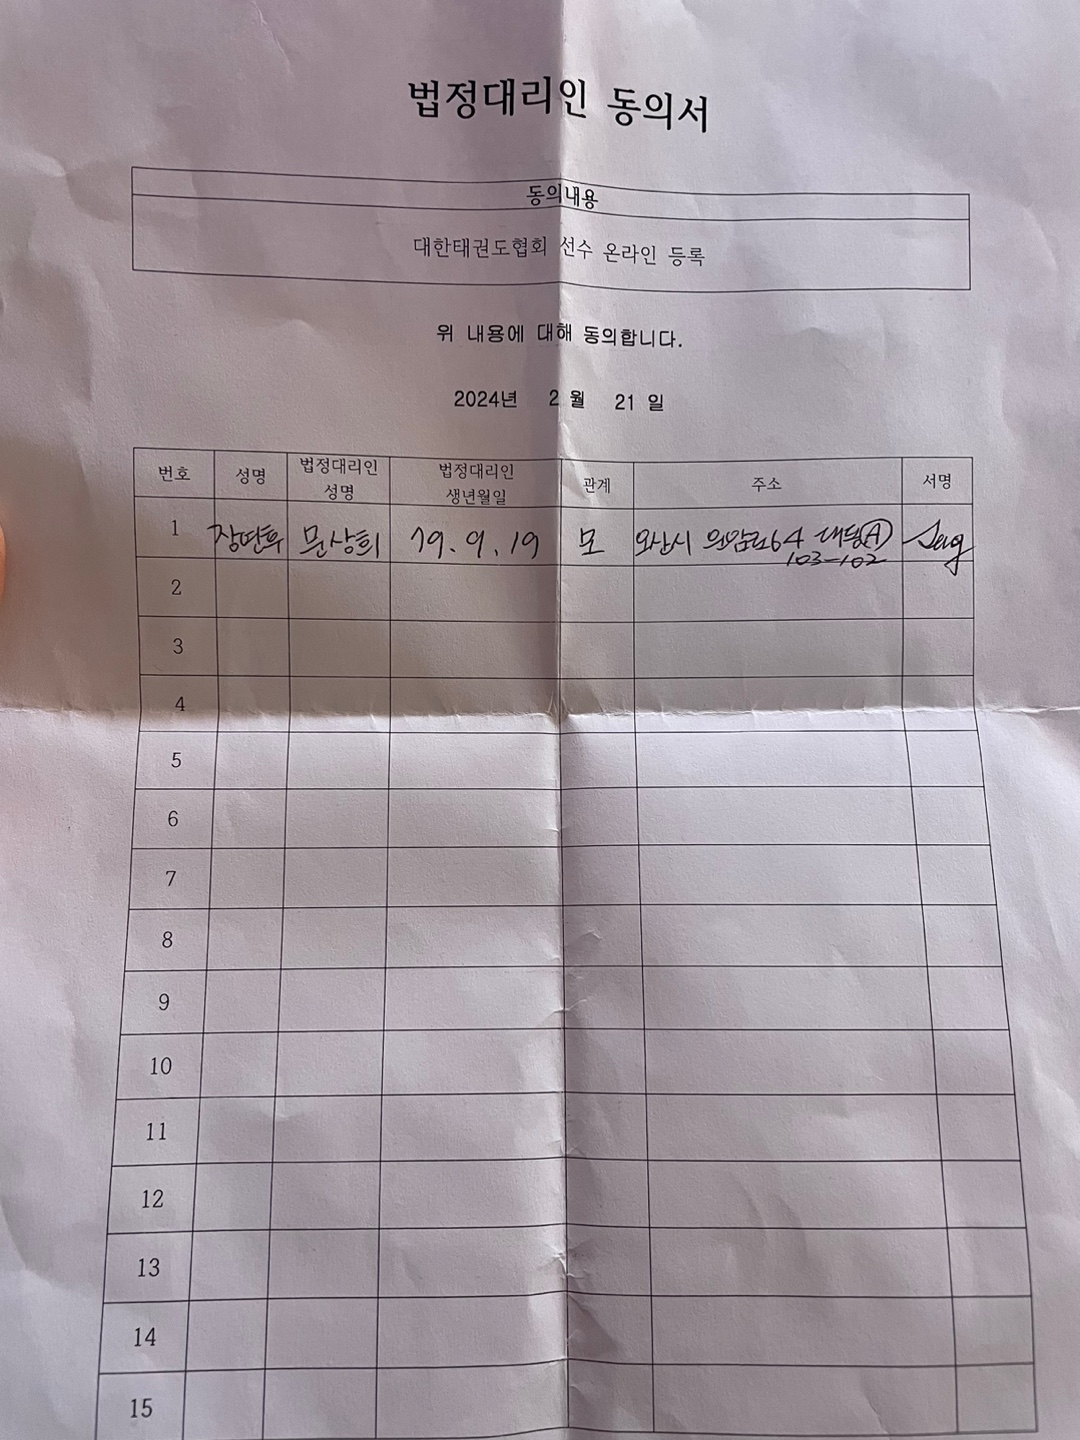 법정대리인 동의서
동의내용
대한태권도협회 선수 온라인 등록
위 내용에 대해 동의합니다.
2024년 2 월 21 일
번호 성명 법정대리인 성명 법정대리인 생년월일 관계 주소 서명
1 장연후 문상희 79.9.19 모 오산시 64 대동Ⓐ
103-102
2
3
4
5
6
7
8
9
10
11
12
13
14
15